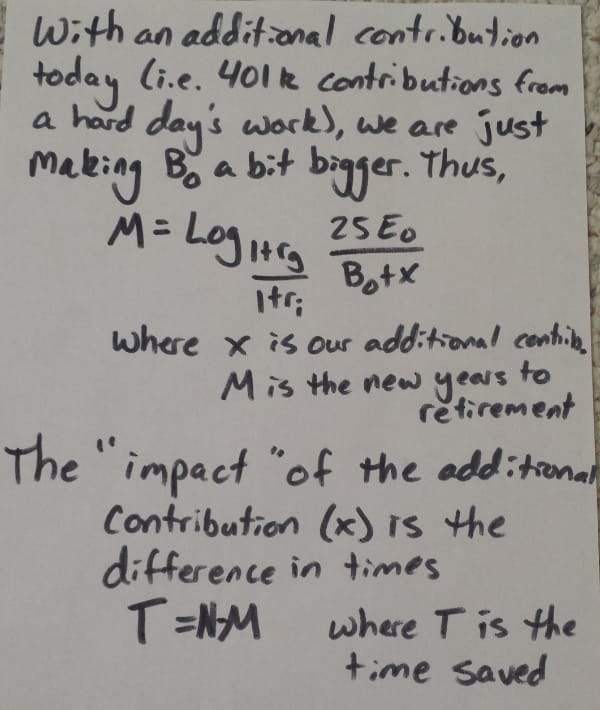 With an additional contribution
today (i.e. 401k contributions from
a hard day's work), we are just
making B₀ a bit bigger. Thus,
M = Log_{(1+r_g)/(1+r_i)} (25E₀)/(B₀+x)
where x is our additional contrib.
M is the new years to
retirement
The "impact" of the additional
Contribution (x) is the
difference in times
T = N-M where T is the
time saved